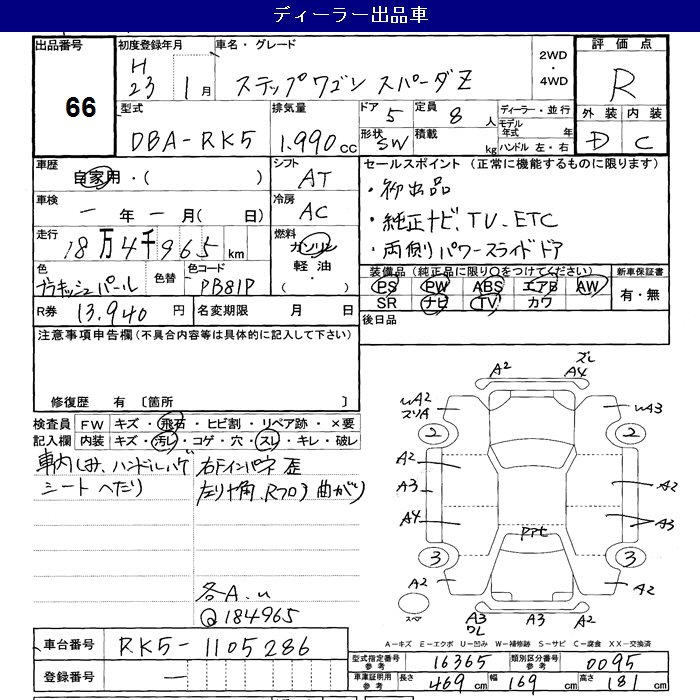 ディーラー出品車
出品番号 初度登録年月 車名・グレード 2WD ・ 4WD 評価点
66
H 23 1月 ステップワゴン スパーダZ R
型式 排気量 ドア 5 定員 8人 ディーラー・並行 外装 内装
DBA-RK5 1.990cc 形状 SW 積載 kg モデル年式 年 ハンドル 左・右 D C
車歴 自家用・( ) シフト AT セールスポイント (正常に機能するものに限ります)
・初出品
車検 ー年ー月( 日) 冷房 AC ・純正ナビ、TV、ETC
走行 18万4千965km 燃料 ガソリン 軽油・( ) ・両側パワースライドドア
色 ブラキッシュパール 色替 色コード PB81P
装備品(純正品に限り○をつけてください) 新車保証書
PS PW ABS エアB AW 有・無
SR ナビ TV カワ
R券 13.940円 名変期限 月 日 後日品
注意事項申告欄(不具合内容等は具体的に記入して下さい)
修復歴 有 〔箇所 〕
検査員 記入欄 FW キズ・飛石・ヒビ割・リペア跡・×要
内装 キズ・汚レ・コゲ・穴・スレ・キレ・破レ
車内しみ、ハンドルハゲ 右Fインパネ歪
シートへたり
各A.u
Q184965
A2 ズレ A4
uA2 スリA uA3
2 2
A2
A3 A2
A4 A3
PPt
3 3
A2 A2
スペア A3 ワレ A3 A2
A-キズ E-エクボ U-凹み W-補修跡 S-サビ C-腐食 XX-交換済
車台番号 RK5-1105286
型式指定番号 参考 16365 類別区分番号 参考 0095
登録番号 ー
車庫証明用 参考 長さ 469cm 幅 169cm 高さ 181cm